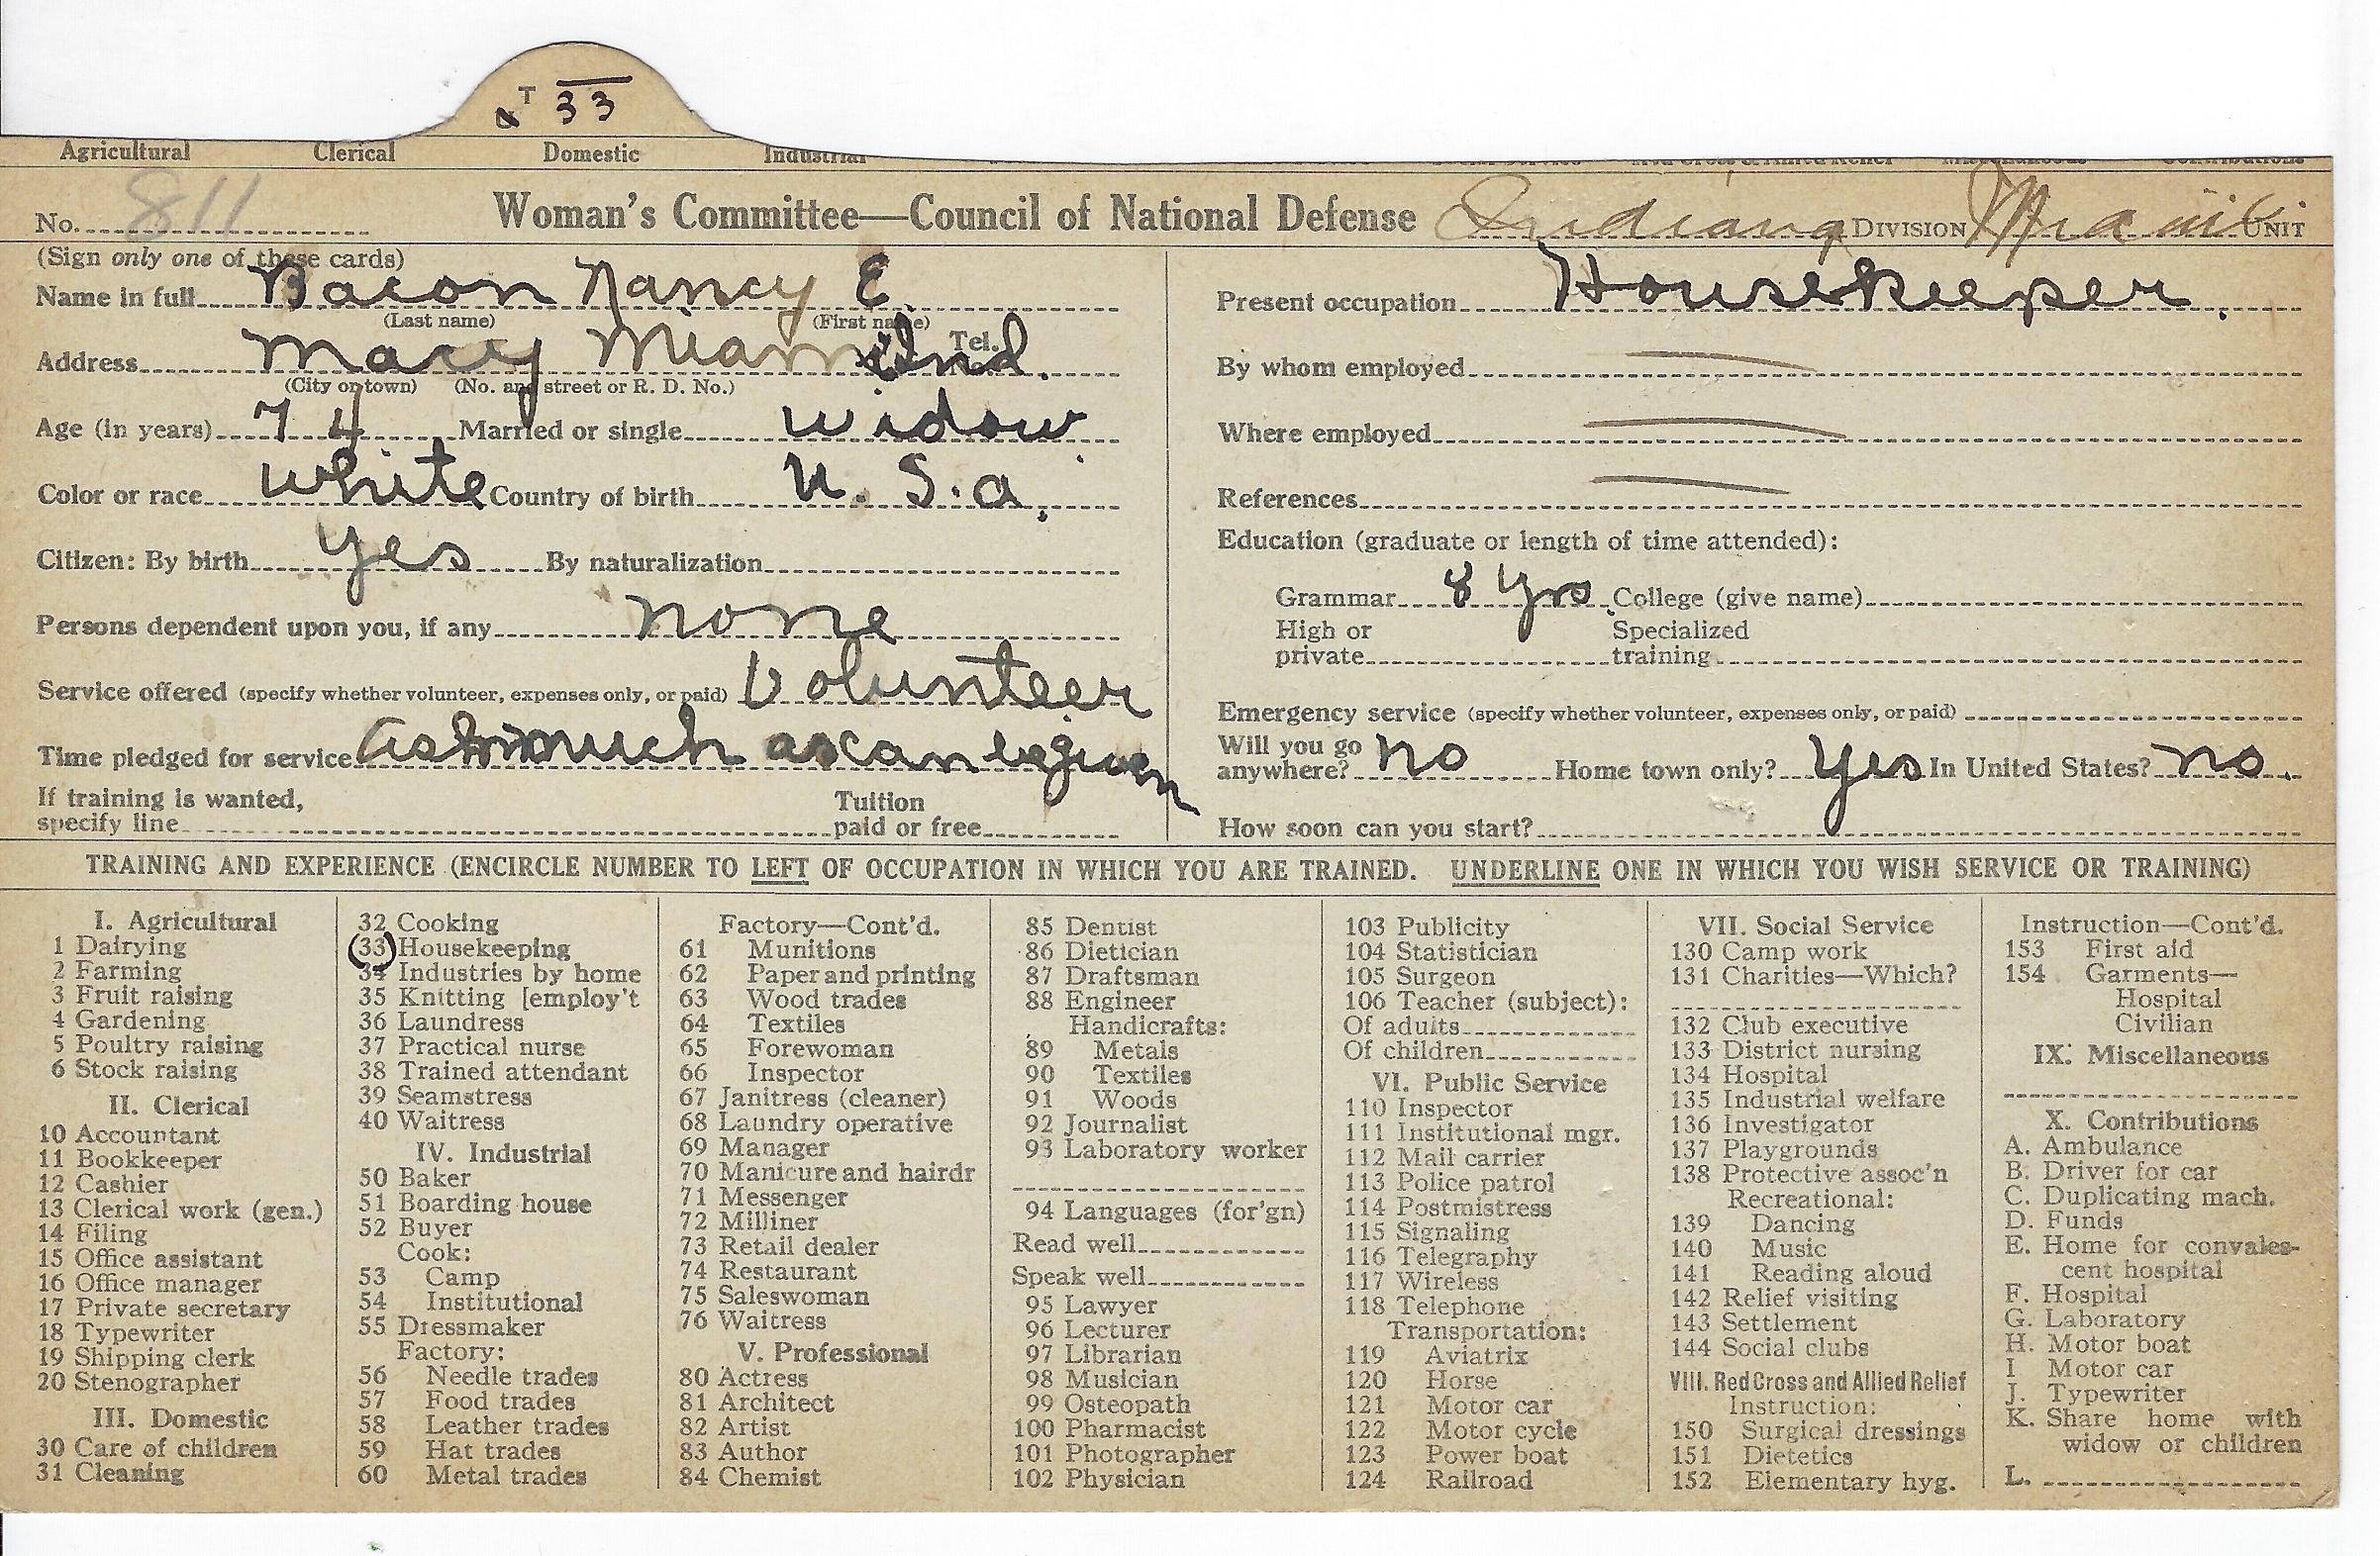 T 33
Agricultural Clerical Domestic Industrial
No. 811 Woman's Committee—Council of National Defense Indiana DIVISION Miami UNIT
(Sign only one of these cards)
Name in full Bacon Nancy E.
(Last name) (First name)
Address Macy Miami Ind. Tel.
(City or town) (No. and street or R. D. No.)
Age (in years) 74 Married or single widow
Color or race White Country of birth U. S. a.
Citizen: By birth yes By naturalization
Persons dependent upon you, if any none
Service offered (specify whether volunteer, expenses only, or paid) Volunteer
Time pledged for service as much as can be given
If training is wanted,
specify line Tuition
paid or free
Present occupation Housekeeper.
By whom employed
Where employed
References
Education (graduate or length of time attended):
Grammar 8 yrs. College (give name)
High or
private Specialized
training
Emergency service (specify whether volunteer, expenses only, or paid)
Will you go
anywhere? no Home town only? Yes In United States? no.
How soon can you start?
TRAINING AND EXPERIENCE (ENCIRCLE NUMBER TO LEFT OF OCCUPATION IN WHICH YOU ARE TRAINED. UNDERLINE ONE IN WHICH YOU WISH SERVICE OR TRAINING)
I. Agricultural
1 Dairying
2 Farming
3 Fruit raising
4 Gardening
5 Poultry raising
6 Stock raising
II. Clerical
10 Accountant
11 Bookkeeper
12 Cashier
13 Clerical work (gen.)
14 Filing
15 Office assistant
16 Office manager
17 Private secretary
18 Typewriter
19 Shipping clerk
20 Stenographer
III. Domestic
30 Care of children
31 Cleaning
32 Cooking
(33) Housekeeping
34 Industries by home
35 Knitting [employ't
36 Laundress
37 Practical nurse
38 Trained attendant
39 Seamstress
40 Waitress
IV. Industrial
50 Baker
51 Boarding house
52 Buyer
Cook:
53 Camp
54 Institutional
55 Dressmaker
Factory:
56 Needle trades
57 Food trades
58 Leather trades
59 Hat trades
60 Metal trades
Factory—Cont'd.
61 Munitions
62 Paper and printing
63 Wood trades
64 Textiles
65 Forewoman
66 Inspector
67 Janitress (cleaner)
68 Laundry operative
69 Manager
70 Manicure and hairdr
71 Messenger
72 Milliner
73 Retail dealer
74 Restaurant
75 Saleswoman
76 Waitress
V. Professional
80 Actress
81 Architect
82 Artist
83 Author
84 Chemist
85 Dentist
86 Dietician
87 Draftsman
88 Engineer
Handicrafts:
89 Metals
90 Textiles
91 Woods
92 Journalist
93 Laboratory worker
94 Languages (for'gn)
Read well
Speak well
95 Lawyer
96 Lecturer
97 Librarian
98 Musician
99 Osteopath
100 Pharmacist
101 Photographer
102 Physician
103 Publicity
104 Statistician
105 Surgeon
106 Teacher (subject):
Of adults
Of children
VI. Public Service
110 Inspector
111 Institutional mgr.
112 Mail carrier
113 Police patrol
114 Postmistress
115 Signaling
116 Telegraphy
117 Wireless
118 Telephone
Transportation:
119 Aviatrix
120 Horse
121 Motor car
122 Motor cycle
123 Power boat
124 Railroad
VII. Social Service
130 Camp work
131 Charities—Which?
132 Club executive
133 District nursing
134 Hospital
135 Industrial welfare
136 Investigator
137 Playgrounds
138 Protective assoc'n
Recreational:
139 Dancing
140 Music
141 Reading aloud
142 Relief visiting
143 Settlement
144 Social clubs
VIII. Red Cross and Allied Relief
Instruction:
150 Surgical dressings
151 Dietetics
152 Elementary hyg.
Instruction—Cont'd.
153 First aid
154 Garments—
Hospital
Civilian
IX. Miscellaneous
X. Contributions
A. Ambulance
B. Driver for car
C. Duplicating mach.
D. Funds
E. Home for convales-
cent hospital
F. Hospital
G. Laboratory
H. Motor boat
I Motor car
J. Typewriter
K. Share home with
widow or children
L.